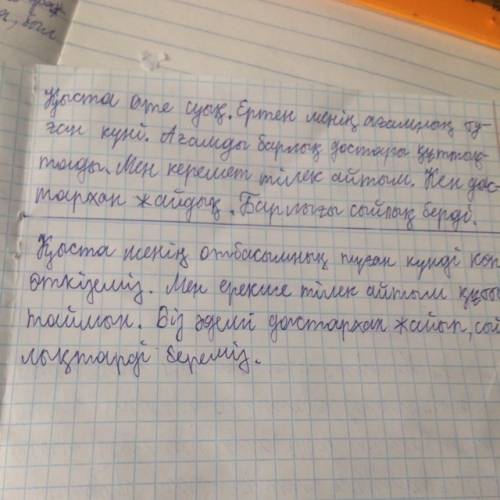 Қыста өте суық. Ертен менің ағамның ту-
ған күні. Ағамды барлық достары құттық-
тайды. Мен керемет тілек айтым. Кен дас-
тархан жайдық. Барлығы сыйлық берді.
Қыста менің отбасымның туған күнді көп
өткіземіз. Мен ерекше тілек айтым құты
таймын. Біз әдемі дастархан жайып, сый
лықтарді береміз.